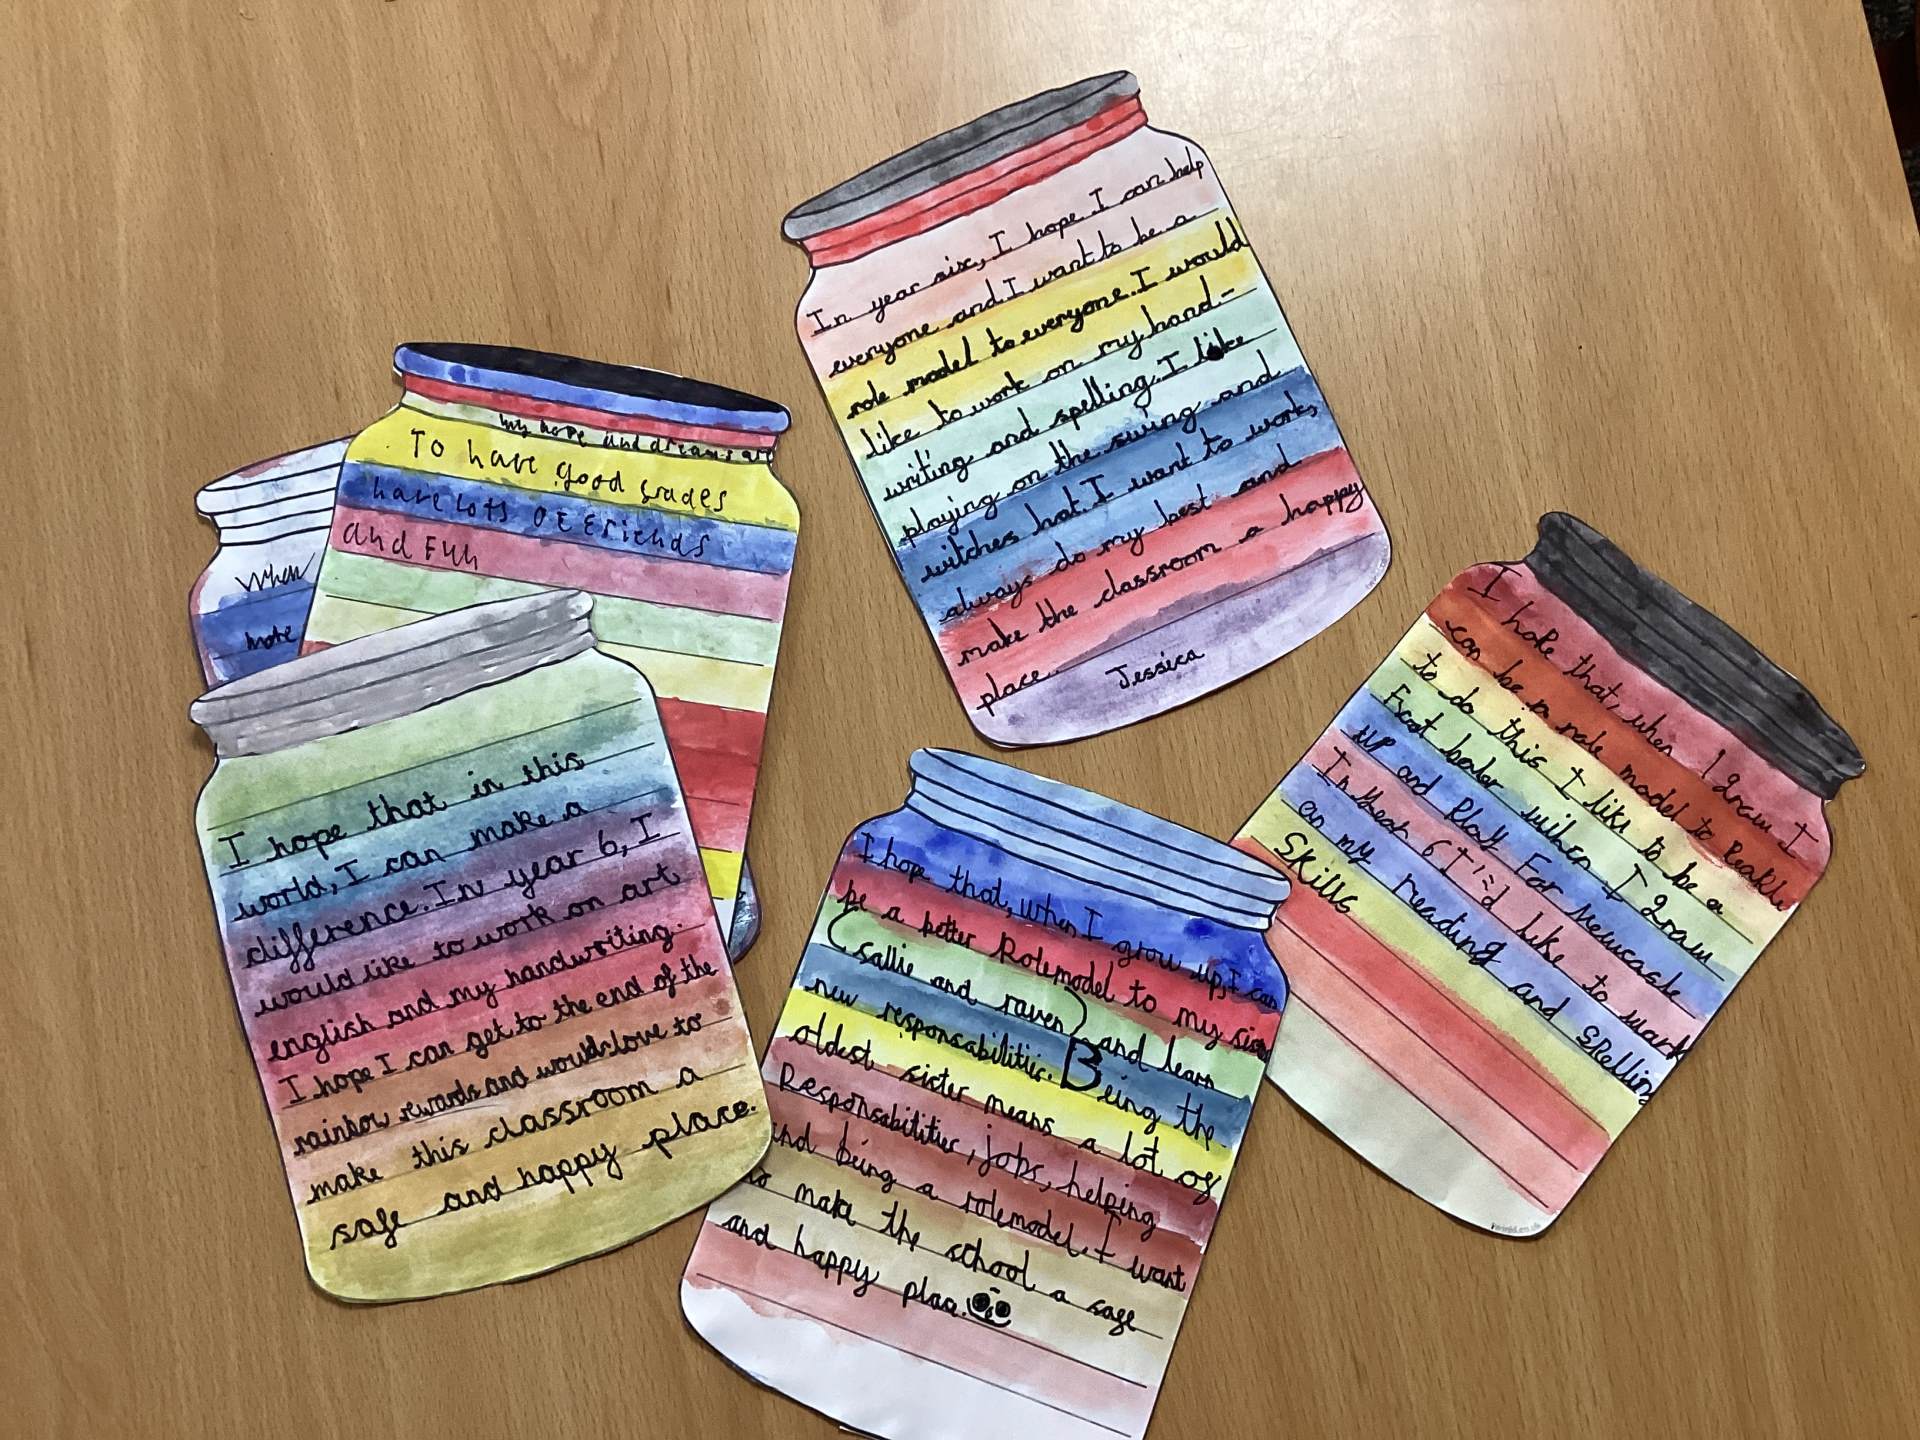 In year six, I hope I can help
everyone and I want to be a
role model to everyone. I would
like to work on my hand-
writing and spelling. I like
playing on the swing and
witches hat. I want to work,
always do my best and
make the classroom a happy
place.
Jessica
my hope and dreams are
To have good grades
have lots of friends
and Fun
When
more
I hope that in this
world, I can make a
difference. In year 6, I
would like to work on art
english and my handwriting.
I hope I can get to the end of the
rainbow rewards and would love to
make this classroom a
safe and happy place.
I hope that, when I grow up, I can
be a better Rolemodel to my sis
(sallie and raven) and learn
new responsabilities. Being the
oldest sister means a lot of
Responsabilities, jobs, helping
and being a rolemodel. I want
to make the school a safe
and happy place.
I hoPe that, when I grow I
can be a role model to
to do this I like to be a
Foot baler when I graw
UP and Play For Newcasle
In year 6 I'd like to work
on my reading and SPelling
Skills